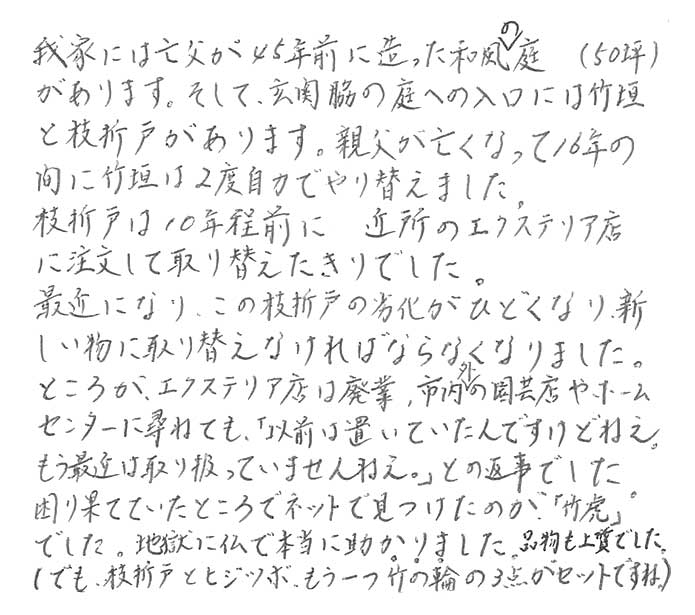 我家には亡父が45年前に造った和風の庭 (50坪)
があります。そして、玄関脇の庭への入口には竹垣
と枝折戸があります。親父が亡くなって16年の
間に竹垣は2度自力でやり替えました。
枝折戸は10年程前に 近所のエクステリア店
に注文して取り替えたきりでした。
最近になり、この枝折戸の劣化がひどくなり、新
しい物に取り替えなければならなくなりました。
ところが、エクステリア店は廃業、市内外の園芸店や、ホーム
センターに尋ねても、「以前は置いていたんですけどねえ。
もう最近は取り扱っていませんねえ。」との返事でした
困り果てていたところでネットで見つけたのが、「竹虎」。
でした。地獄に仏で本当に助かりました。品物も上質でした。
(でも、枝折戸とヒジツボ、もう一つ竹の輪の3点がセットですね。)